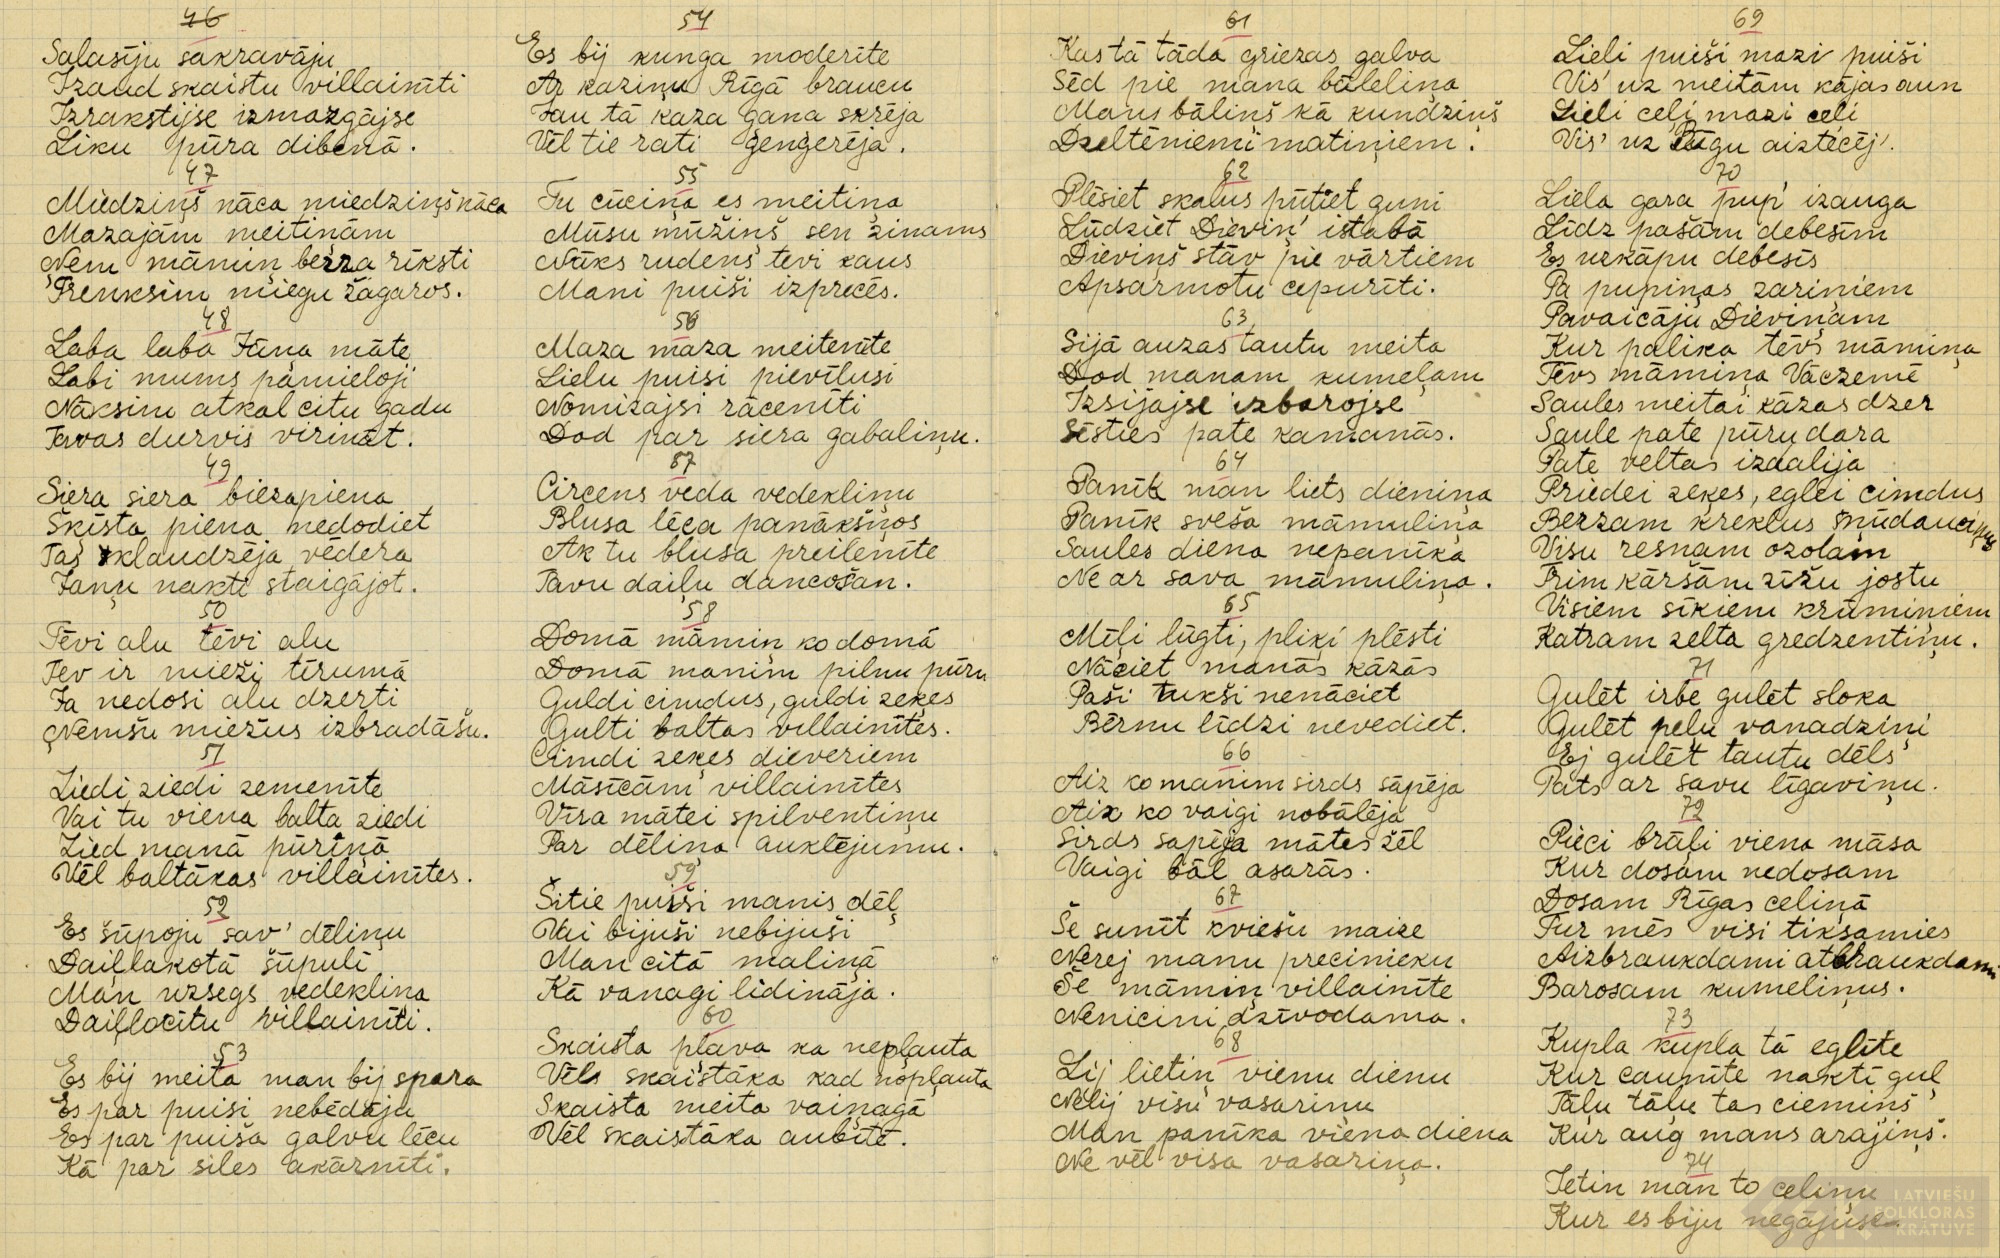 46
Salasīju sakravāju
Izaud skaistu villainīti
Izrakstījse izmazgājse
Liku pūra dibenā.
47
Miedziņš nāca miedziņš nāca
Mazajām meitiņām
Ņem māmiņ bērza rīksti
Trenksim miegu žagaros.
48
Laba laba Jāņa māte
Labi mums pamieloj'
Nāksim atkal citu gadu
Tavas durvis virināt.
49
Siera siera biezapiena
Šķista piena nedodiet
Tas sklaudzēja vēdera
Jaņu nakti staigājot.
50
Tēvi alu tēvi alu
Tev ir mieži tīrumā
Ja nedosi alu dzerti
Ņemšu miežus izbradāšu.
51
Ziedi ziedi zemenīte
Vai tu viena balta ziedi
Zied manā pūriņā
Vēl baltākas villainītes.
52
Es šūpoju sav' dēliņu
Daiļlakotā šūpulī
Man uzsegs vedekliņa
Daiļlocītu villainīti.
53
Es bij meita man bij spara
Es par puisi nebēdāju
Es par puiša galvu lēcu
Kā par siles akārnīti.
54
Es bij kunga moderīte
Ar kaziņu Rīgā braucu
Jau tā kaza gana skrēja
Vēl tie rati ģenģerēja.
55
Tu cūciņa es meitiņa
Mūsu mūžiņš sen zinams
Nāks rudens tevi kaus
Mani puiši izprecēs.
56
Maza maza meitenīte
Lielu puisi pievīlusi
Nomizajsi rācenīti
Dod par siera gabaliņu.
57
Circens veda vedekliņu
Blusa lēca panākšņos
Ak tu blusa preilenīte
Tavu daiļu dancošan.
58
Domā māmiņ ko domā
Domā manim pilnu pūru
Guldi cimdus, guldi zeķes
Gulti baltas villainītes.
Cimdi zeķes dieveriem
Māsīcām villainītes
Vīra mātei spilventiņu
Par dēliņa auklējumu.
59
Šitie puiši manis dēļ
Vai bijuši nebijuši
Man citā maliņā
Kā vanagi lidināja.
60
Skaista pļava ka nepļauta
Vēls skaistāka kad nopļauta
Skaista meita vaiņagā
Vēl skaistāka aubītē.
61
Kas tā tāda griezas galva
Sēd pie mana bāleliņa
Mans bāliņš kā kundziņš
Dzeltēniemi matiņiem.
62
Plēsiet skalus pūtiet guni
Lūdziet Dieviņ' istabā
Dieviņš stāv pie vārtiem
Apsarmotu cepurīti.
63
Sijā auzas tautu meita
Dod manam kumeļam
Izsijajse izbarojse
Sēsties pate kamanās.
64
Panīk man liets dieniņa
Panīk sveša māmuliņa
Saules diena nepanīka
Ne ar sava māmuliņa.
65
Mīļi lūgti, pliki plēsti
Nāciet manās kāzās
Paši tukši nenāciet
Bērnu līdzi nevediet.
66
Aiz ko manim sirds sāpēja
Aiz ko vaigi nobālēja
Sirds sapēja mātes žēl
Vaigi bāl asarās.
67
Še sunīt kviešu maize
Nerej manu precinieku
Še māmiņ villainīte
Nenicini dzīvodama.
68
Lij lietiņ vienu dienu
Nelij visu vasariņu
Man panīka viena diena
Ne vēl visa vasariņa.
69
Lieli puiši mazi puiši
Vis' uz meitām kājas aun
Lieli ceļi mazi celi
Vis' uz Rīgu aiztecēj'.
70
Liela gara pup' izauga
Līdz pašām debesīm
Es uzkāpu debesīs
Pa pupiņas zariņiem
Pavaicāju Dieviņam
Kur palika tēvs māmiņa
Tēvs māmiņa Vāczemē
Saules meitai kāzas dzer
Saule pate pūru dara
Pate veltas izdalija
Priedei zeķes, eglei cimdus
Berzam kreklus snīdauciņus
Visu resnam ozolam
Trim kāršām zīžu jostu
Visiem sīkiem krūmiņiem
Katram zelta gredzentiņu.
71
Gulēt irbe gulēt sloka
Gulēt peļu vanadziņi
Ej gulēt tautu dēls
Pats ar savu līgaviņu.
72
Pieci brāļi viena māsa
Kur dosam nedosam
Dosam Rīgas celiņā
Tur mēs visi tiksamies
Aizbraukdami atbraukdami
Barosam kumeliņus.
73
Kupla kupla tā eglīte
Kur caunīte naktī guļ
Tāļu tāļu tas ciemiņš
Kur aug mans arājiņš.
74
Ietin man to celiņu
Kur es biju negājuse.
LATVIEŠU
FOLKLORAS
KRĀTUVE